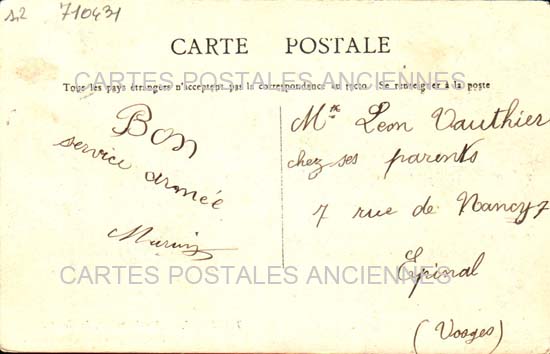 s.2 710431
CARTE POSTALE
CARTES POSTALES ANCIENNES
Tous les pays étrangers n'acceptent pas la correspondance au recto. (Se renseigner à la poste
Bon
service armée
Mr Leon Vauthier
chez ses parents
7 rue de Nancy 7
Epinal
(Vosges)
CARTES POSTALES ANCIENNES